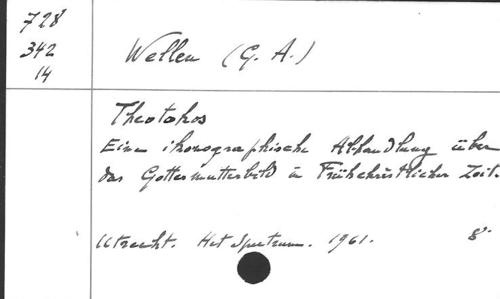 728
342
14
Wellen (G. A.)
Theotokos
Eine ikonographische Abhandlung über
das Gottesmutterbild in Frühchristlicher Zeit.
Utrecht. Het Spectrum. 1961. 8°.